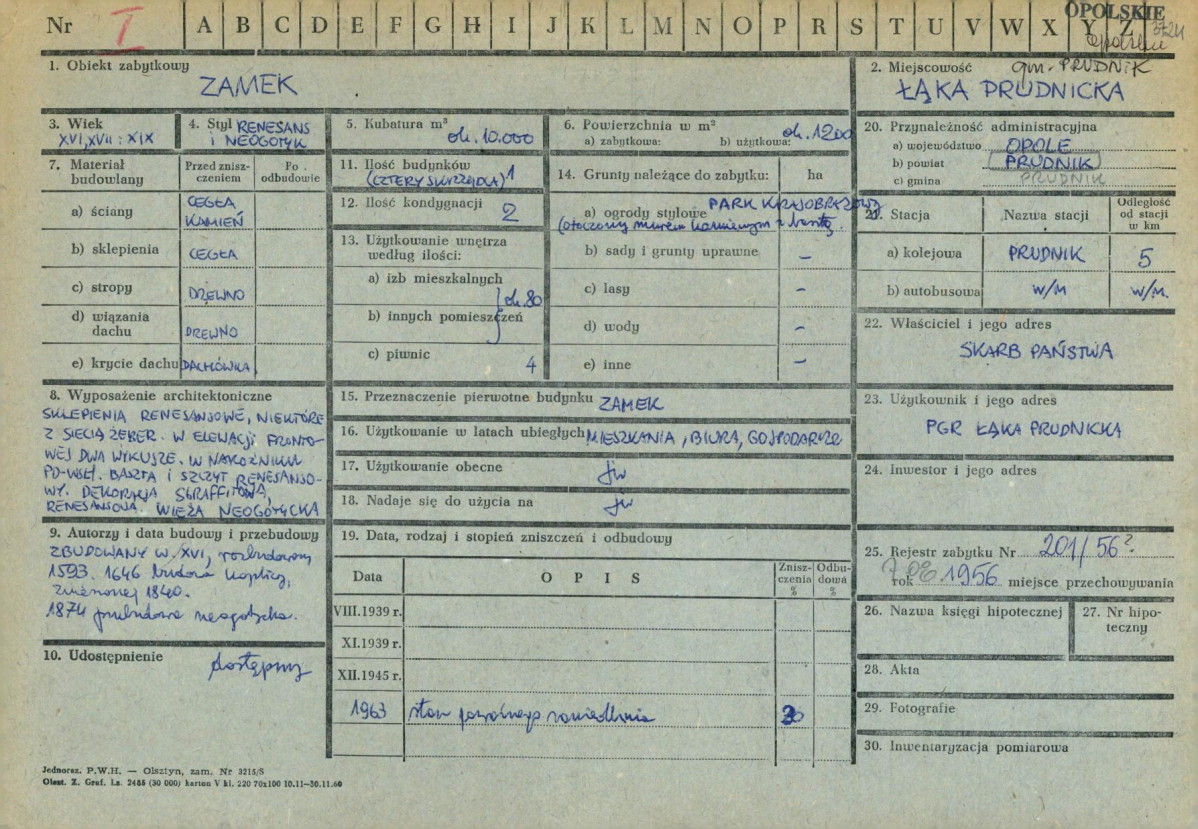 Nr I A B C D E F G H I J K L M N O P R S T U V W X Y Z
OPOLSKIE
opolskie
1. Obiekt zabytkowy
ZAMEK
2. Miejscowość gm. PRUDNIK
ŁĄKA PRUDNICKA
3. Wiek
XVI, XVII i XIX
4. Styl RENESANS
i NEOGOTYK
5. Kubatura m³
ok. 10.000
6. Powierzchnia w m²
a) zabytkowa: b) użytkowa: ok. 1200
7. Materiał budowlany
Przed zniszczeniem
Po odbudowie
a) ściany CEGŁA KAMIEŃ
b) sklepienia CEGŁA
c) stropy DREWNO
d) wiązania dachu DREWNO
e) krycie dachu DACHÓWKA
8. Wyposażenie architektoniczne
SKLEPIENIA RENESANSOWE, NIEKTÓRE
Z SIECIĄ ŻEBER. W ELEWACJI FRONTO-
WEJ DWA WYKUSZE. W NAROŻNIKU
PD-WSCH. BASZTA I SZCZYT RENESANSO-
WY. DEKORACJA SGRAFFITOWA,
RENESANSOWA. WIEŻA NEOGOTYCKA
9. Autorzy i data budowy i przebudowy
ZBUDOWANY W. XVI, rozbudowany
1593. 1646 budowa kaplicy,
zniesionej 1840.
1874 przebudowa neogotycka.
10. Udostępnienie
dostępny
11. Ilość budynków
(CZTERY SKRZYDŁA) 1
12. Ilość kondygnacji
2
13. Użytkowanie wnętrza
według ilości:
a) izb mieszkalnych
ok. 80
b) innych pomieszczeń
c) piwnic 4
14. Grunty należące do zabytku: ha
a) ogrody stylowe PARK KRAJOBRAZOWY
(otoczony murem kamiennym z basztą.
b) sady i grunty uprawne –
c) lasy –
d) wody –
e) inne –
15. Przeznaczenie pierwotne budynku ZAMEK
16. Użytkowanie w latach ubiegłych MIESZKANIA, BIURA, GOSPODARCZE
17. Użytkowanie obecne jw
18. Nadaje się do użycia na jw
19. Data, rodzaj i stopień zniszczeń i odbudowy
Data
O P I S
Zniszczenia %
Odbudowa %
VIII.1939 r.
XI.1939 r.
XII.1945 r.
1963 stan
20. Przynależność administracyjna
a) województwo OPOLE
b) powiat PRUDNIK
c) gmina PRUDNIK
21. Stacja
Nazwa stacji
Odległość od stacji w km
a) kolejowa PRUDNIK 5
b) autobusowa w/m w/m.
22. Właściciel i jego adres
SKARB PAŃSTWA
23. Użytkownik i jego adres
PGR ŁĄKA PRUDNICKA
24. Inwestor i jego adres
25. Rejestr zabytku Nr 201/56?
rok 1956 miejsce przechowywania
26. Nazwa księgi hipotecznej
27. Nr hipoteczny
28. Akta
29. Fotografie
30. Inwentaryzacja pomiarowa
Jednoraz. P.W.H. — Olsztyn, zam. Nr 3215/S
Olszt. Z. Graf. Lz. 2485 (30 000) karton V kl. 220 70x100 10.11—30.11.60